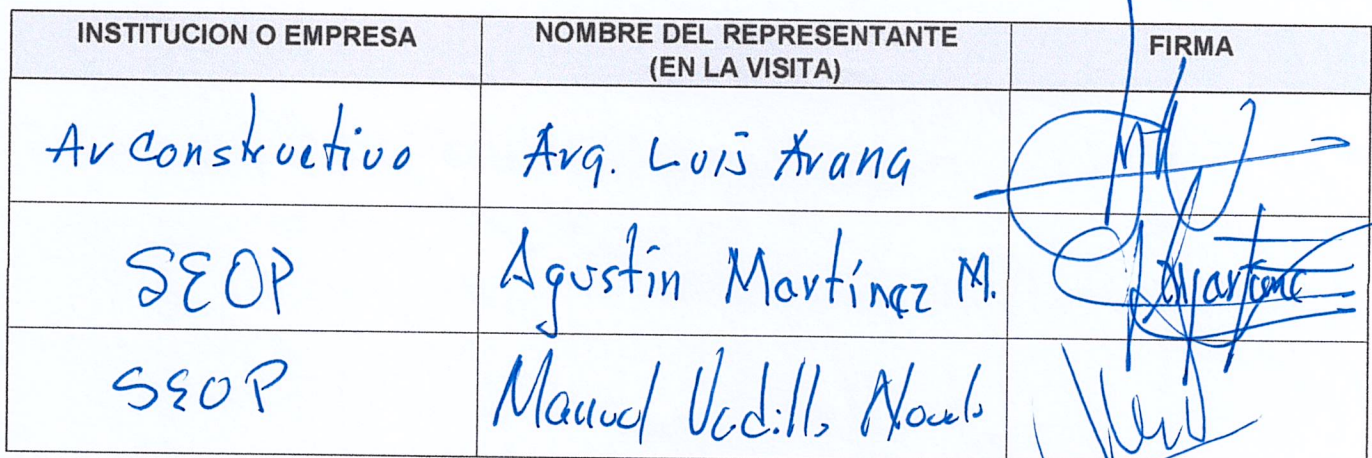 INSTITUCION O EMPRESA NOMBRE DEL REPRESENTANTE (EN LA VISITA) FIRMA
Ar Constructivo Arq. Luis Arana
SEOP Agustín Martínez M.
SEOP Manuel Vadillo